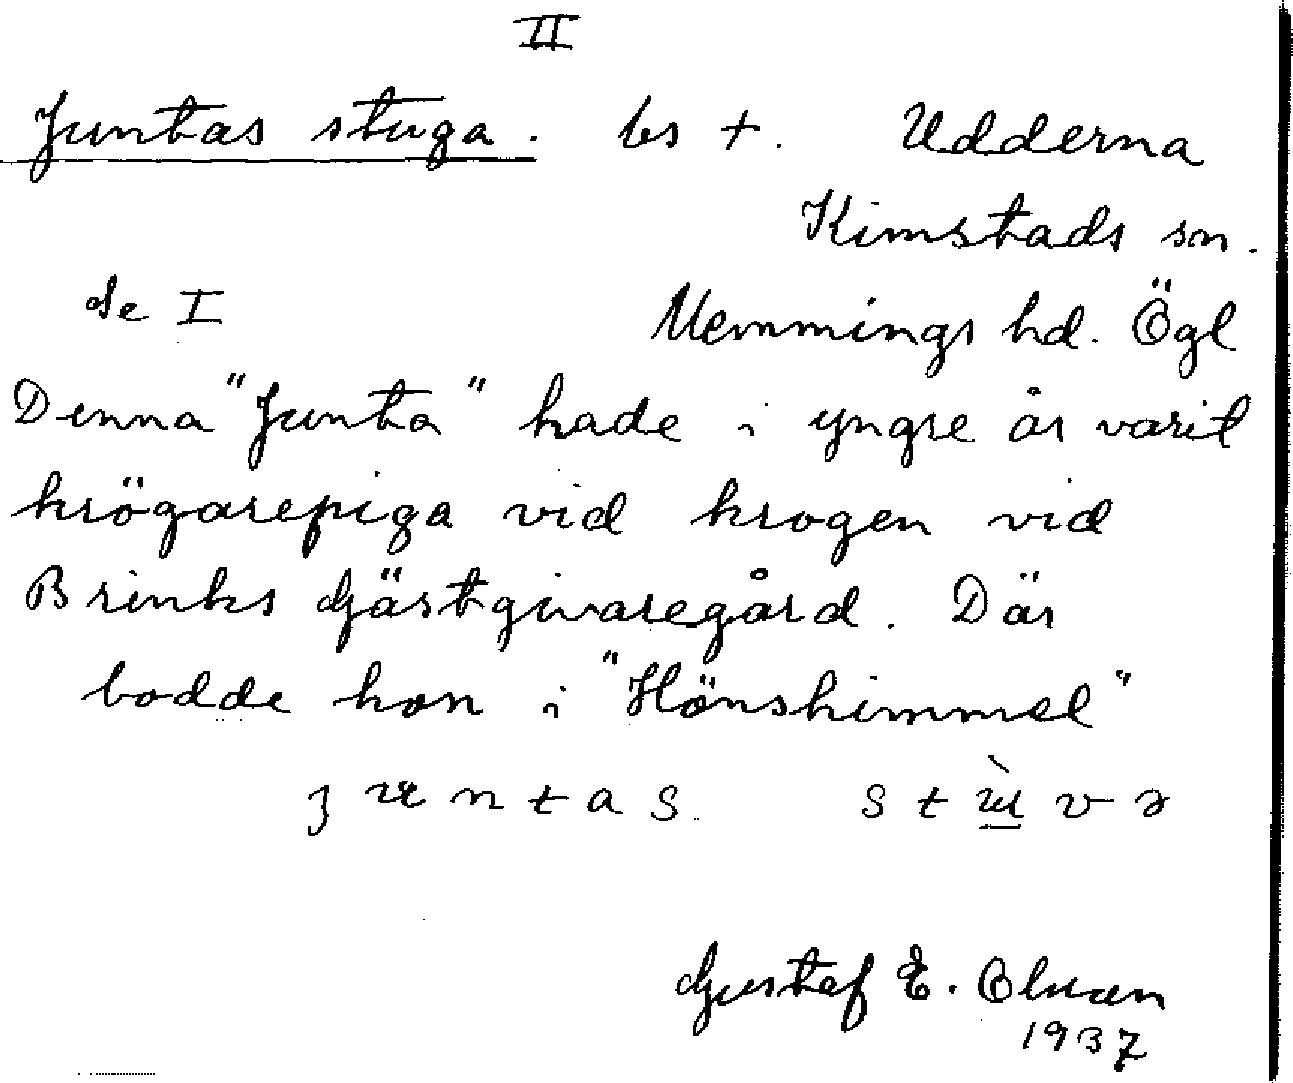 II
Juntas stuga. bs +. Udderna
Kimstads sn.
Se I Memmings hd. Ögl
Denna "Junta" hade i yngre år varit
krögarepiga vid krogen vid
Brinks Gästgivaregård. Där
bodde hon i "Hönshimmel"
Gustaf E.
1937